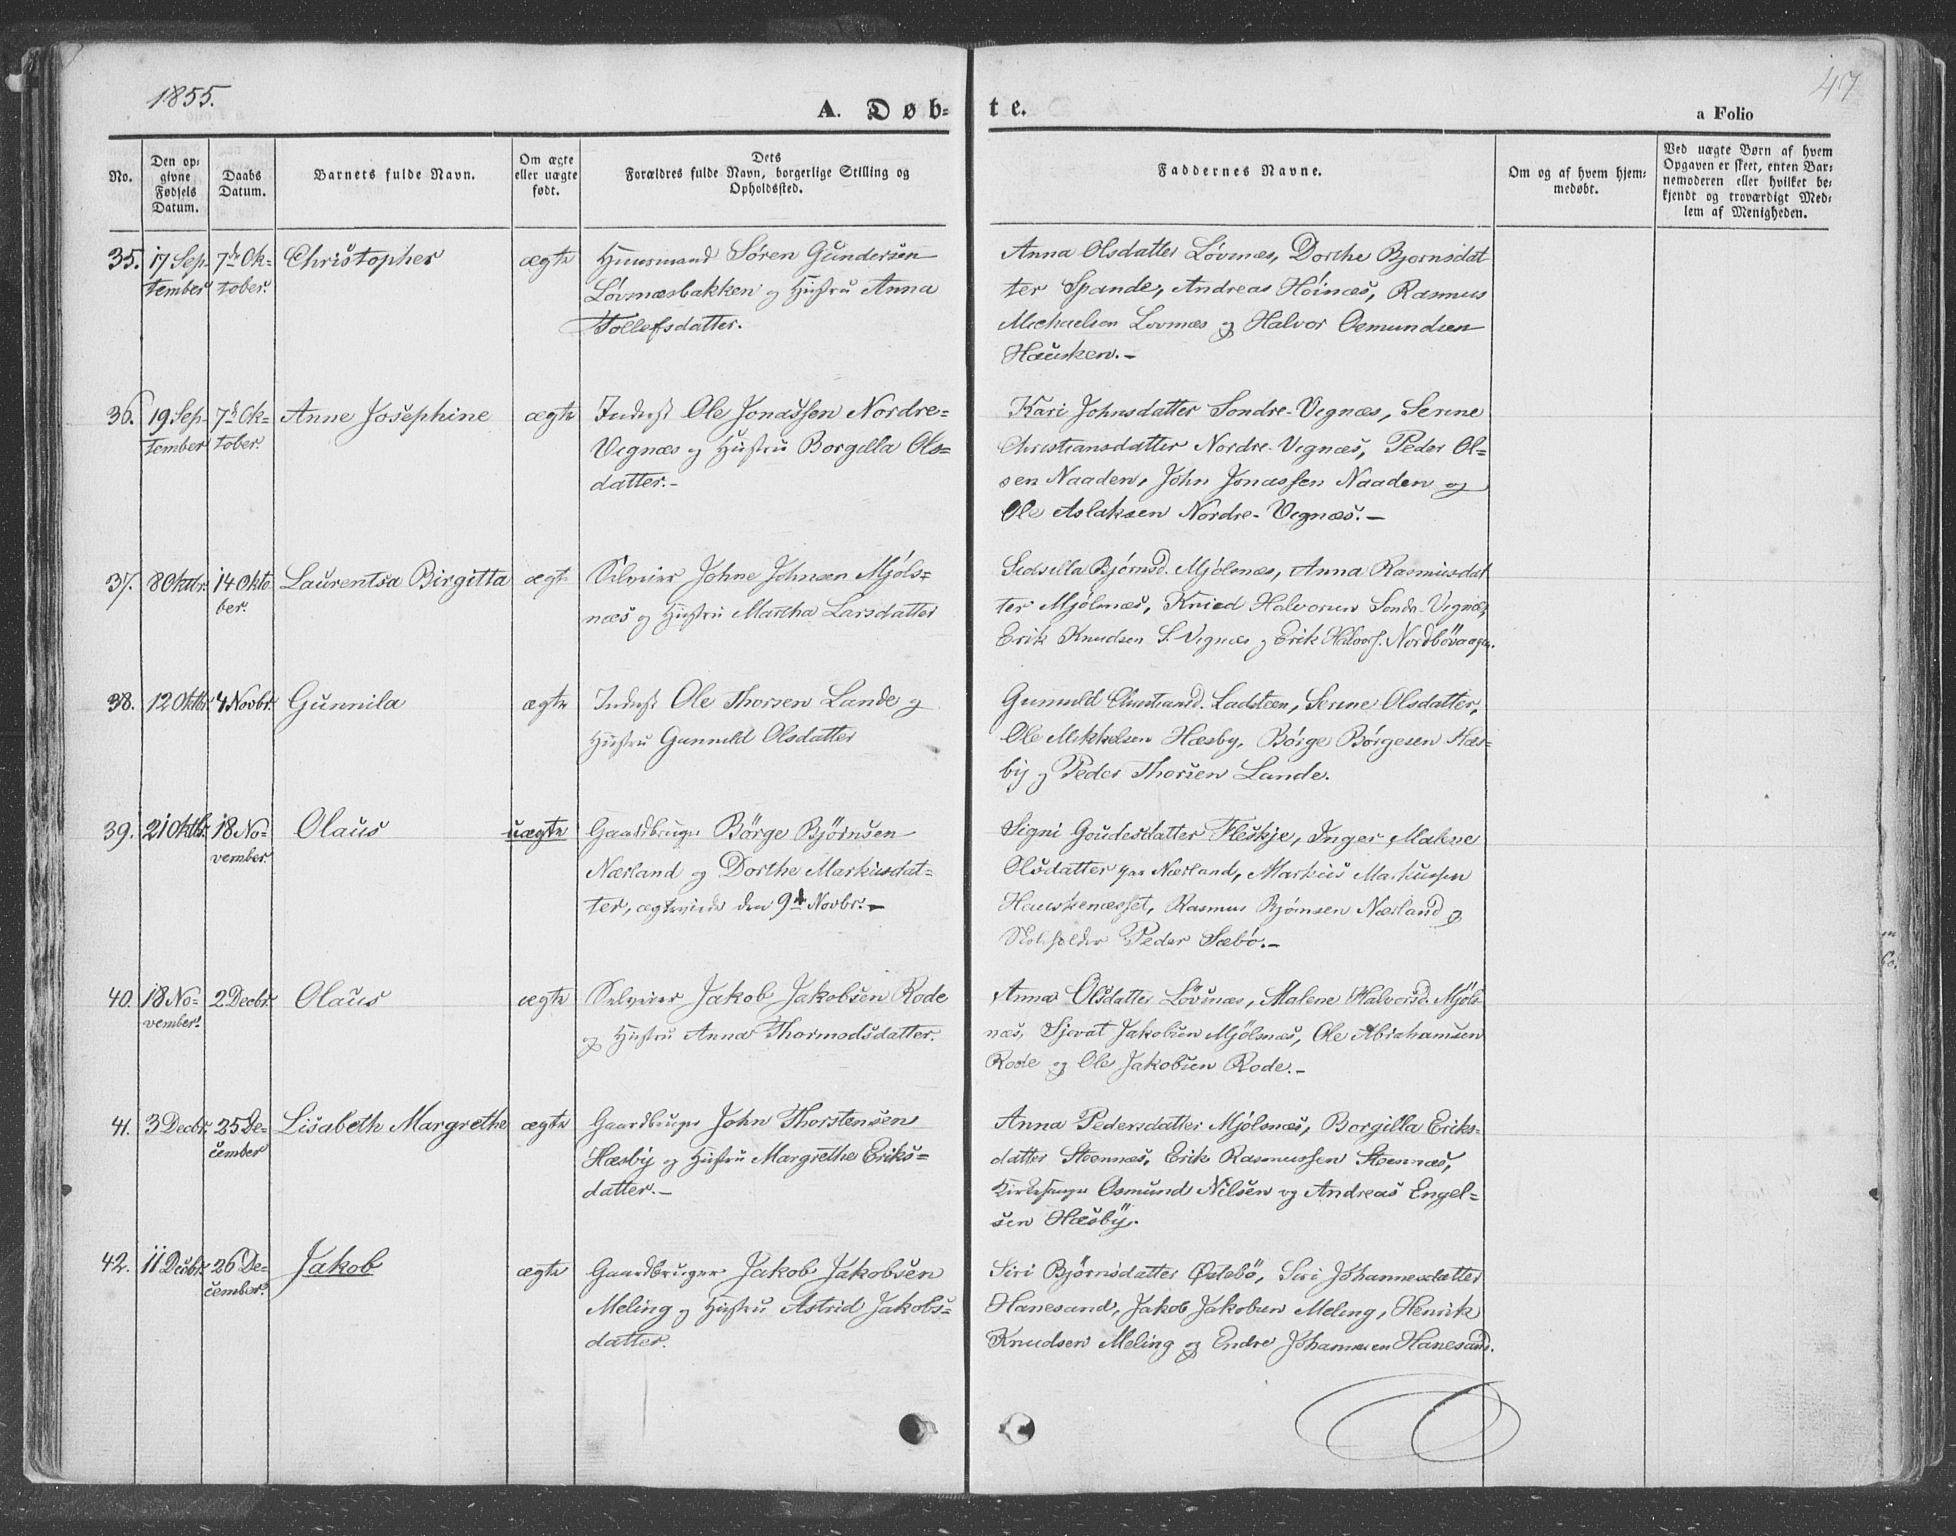 1855.
47
A. Døb-
te.
a Folio
No.
Den op-
givne
Fødsels
Datum.
Daabs
Datum.
Barnets fulde Navn.
Om ægte
eller uægte
født.
Dets
Forældres fulde Navn, borgerlige Stilling og
Opholdssted.
Faddernes Navne.
Om og af hvem hjem-
medøbt.
Ved uægte Børn af hvem
Opgaven er skeet, enten Bar-
nemoderen eller hvilket be-
kjendt og troværdigt Med-
lem af Menigheden.
35. 17 Sep-
tember
7de Ok-
tober.
Christopher
ægte
Huusmand Søren Gundersen
Løvnæsbakken og Hustru Anna
Tollefsdatter.
Anna Olsdatter Løvnæs, Dorthe Bjornsdat
ter Spande, Andreas Höinæs, Rasmus
Michaelsen Lovnæs og Halvor Osmundsen
Hausken.-
36. 19 Sep-
tember
7de Ok-
tober.
Anne Josephine
ægte
Inderst Ole Jonassen Nordre-
Vegnæs og Hustru Borgilla Ols-
datter.-
Kari Johnsdatter Sondre-Vegnæs, Serine
Christiansdatter Nordre-Vegnæs, Peder Ol-
sen Naaden, John Jonassen Naaden og
Ole Aslaksen Nordre-Vegnæs.-
37. 8 Oktbr.
14 Okto
ber.
Laurentsa Birgitta
ægte
Selveier Johne Johnsen Mjöls-
næs og Hustru Martha Larsdatter
Sidsella Bjørnsd. Mjölsnæs, Anna Rasmusdat
ter Mjölsnæs, Knud Halvorsen Sondr. Vegnæs,
Erik Knudsen S. Vegnæs og Erik Halvors. Nordbövaagen.
38. 12 Oktbr.
4 Novbr.
Gunnila
ægte
Inderst Ole Thorsen Lande og
Hustru Gunnild Olsdatter
Gunnild Christiansd. Ladsteen, Serine Olsdatter,
Ole Mikkelsen Hæsby, Börge Börgesen Hæs-
by og Peder Thorsen Lande.
39. 21 Oktbr.
18 No-
vember
Olaus
uægte
Gaardbruger Börge Björnsen
Nærland og Dorthe Markusdat-
ter, ægteviede den 9de Novbr.-
Signi Goudesdatter Fleskje, Inger Malene
Olsdatter paa Nærland, Markus Markussen
Hauskenæsset, Rasmus Bjørnsen Nærland og
Skoleholder Peder Sæbö.-
40. 18 No-
vember.
2 Decbr.
Olaus
ægte
Selveier Jakob Jakobsen Rode
og Hustru Anna Thormodsdatter.
Anna Olsdatter Lövnæs, Malene Halvorsd. Mjöls
næs, Sjevat Jakobsen Mjölsnæs, Ole Abrahamsen
Rode og Ole Jakobsen Rode.-
41. 3 Decbr.
25 De-
cember
Lisabeth Margrethe
ægte
Gaardbruger John Thorstensen
Hæsby og Hustru Margrethe Eriks-
datter.-
Anna Pedersdatter Mjölsnæs, Borgilla Eriks-
datter Steennæs, Erik Rasmussen Steennæs,
Kirkesanger Osmund Nilsen og Andreas Engel-
sen Hæsby.
42. 11 Decbr.
26 De-
cember.
Jakob
ægte
Gaardbruger Jakob Jakobsen
Meling og Hustru Astrid Jakobs-
datter.
Siri Bjørnsdatter Østebö, Siri Johannesdatter
Hanesand, Jakob Jakobsen Meling, Henrik
Knudsen Meling og Endre Johannesen Hanesand.